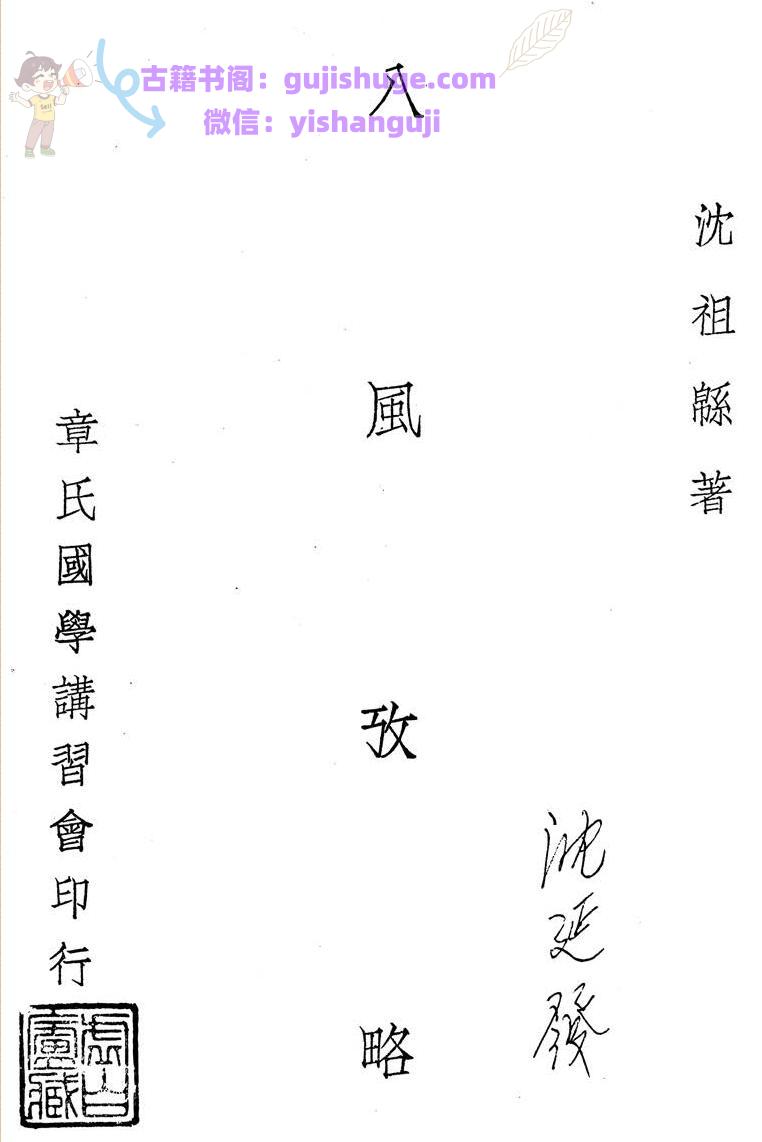 古籍书阁：gujishuge.com
微信：yishanguji
Sell
沈祖緜著
八風攷略
沈延發
章氏國學講習會印行